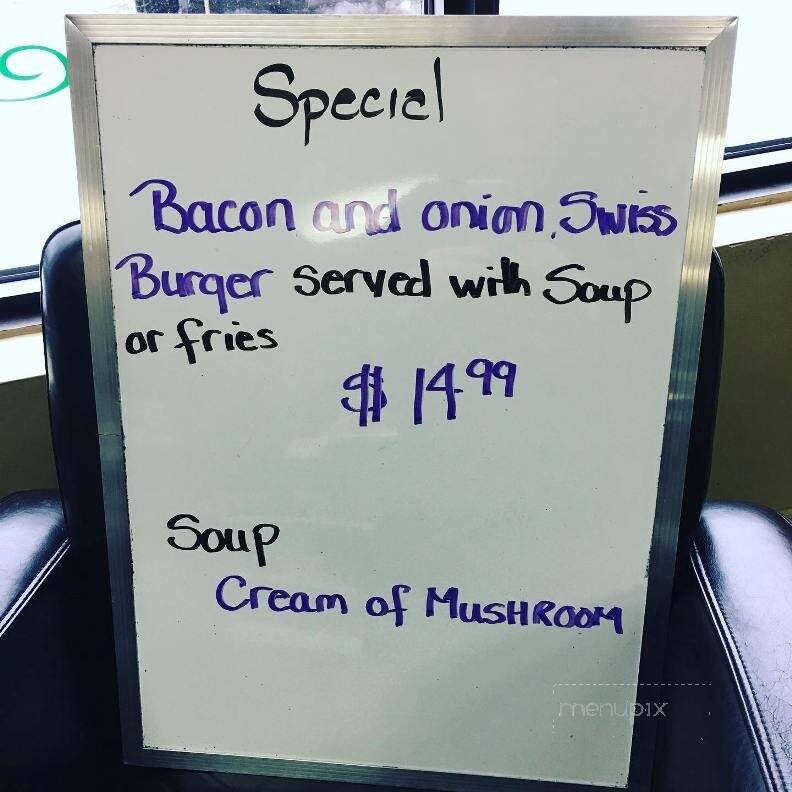 Special
Bacon and onion, Swiss
Burger served with Soup
or fries
$ 14.99
Soup
Cream of MusHROOM
menupix